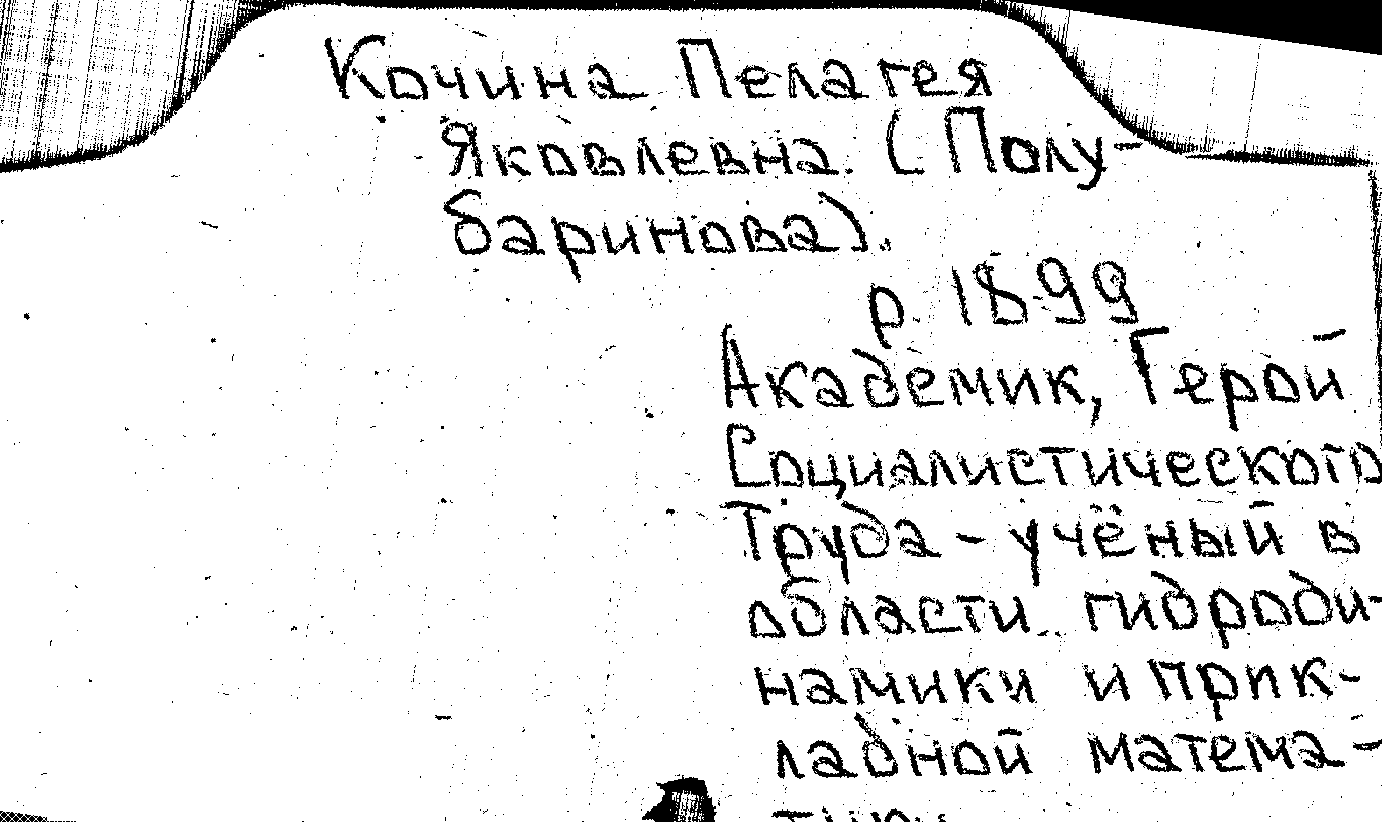 Кочина Пелагея
Яковлевна. (Полу-
баринова).
р. 1899
Академик, Герой
Социалистического
Труда - учёный в
области гидроди-
намики и прик-
ладной матема-
тики